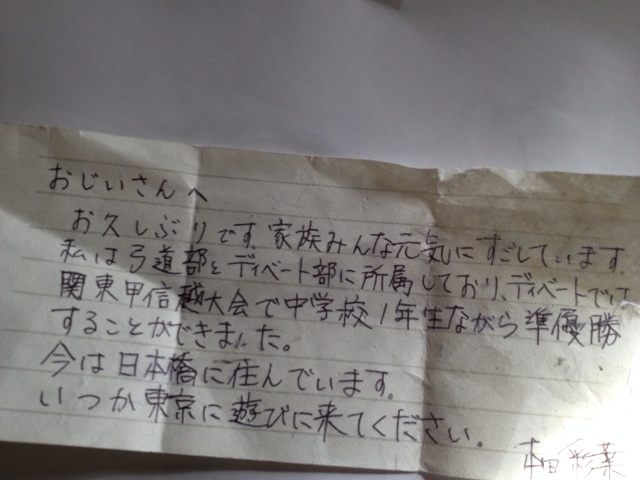 おじいさんへ
お久しぶりです。家族みんな元気にすごしています。
私は弓道部とディベート部に所属しており、ディベートでは
関東甲信越大会で中学校1年生ながら準優勝
することができました。
今は日本橋に住んでいます。
いつか東京に遊びに来てください。